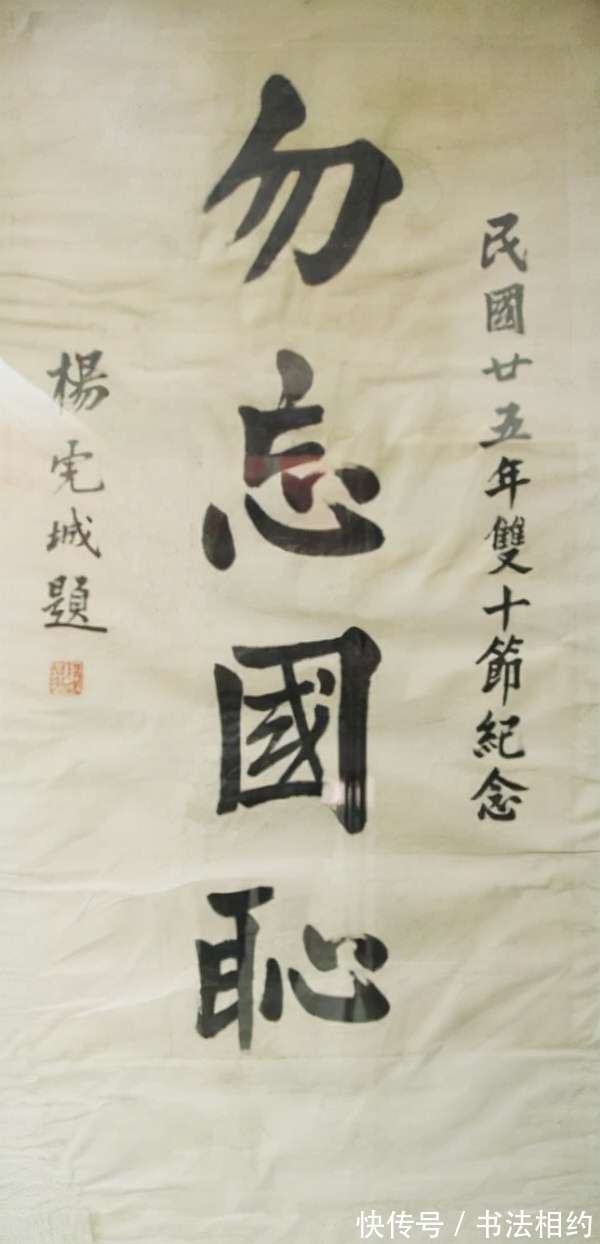 民國廿五年雙十節紀念
勿忘國恥
楊虎城題
快传号 / 书法相约